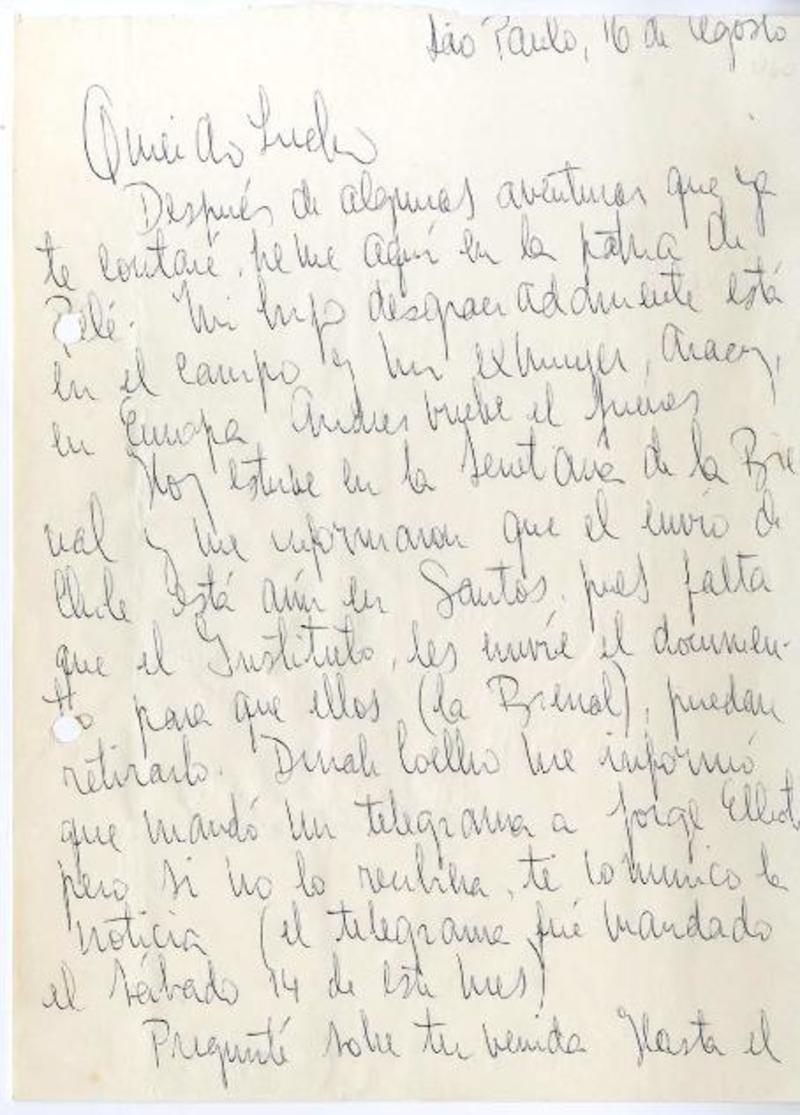 São Paulo, 16 de Agosto
Querido Lucho
Después de algunas aventuras que ya
te contaré, heme aquí en la patria de
Pelé. Mi hijo desgraciadamente está
en el campo y mi exmujer, Aracy,
en Europa. Andres vuelve el jueves
Hoy estuve en la Secretaría de la Bie
nal y me informaron que el envío de
Chile está aún en Santos, pues falta
que el Instituto, les envíe el documen-
to para que ellos (la Bienal), puedan
retirarlo. Dinah Coelho me informó
que mandó un telegrama a Jorge Elliott,
pero si no lo recibiera, te comunico la
noticia (el telegrama fué mandado
el Sábado 14 de este mes)
Pregunté sobre tu venida Hasta el